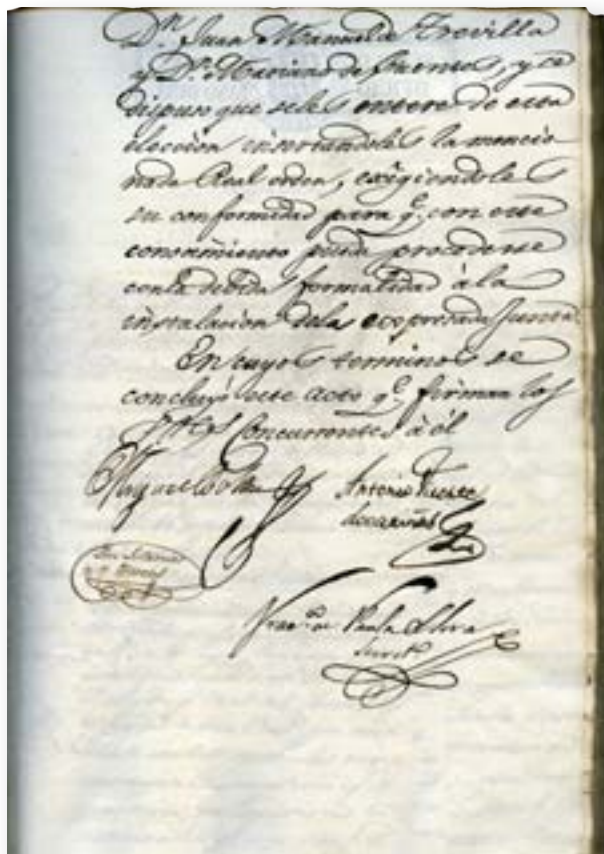 Dn. Juan Manuel de Trevilla
y Dn. Mariano de fuentes, y se
dispuso que se les entere de esta
eleccion insertandoles la mencio
nada Real orden, exigiendoles
su conformidad para q.e con este
conocimiento pueda procederse
con la debida formalidad à la
instalacion dela expresada Junta.
En cuyos terminos se
concluyó este acto q.e firman los
S.res Concurrentes à él
Miguel
Antonio
Fran.co de Paula
Secret.o